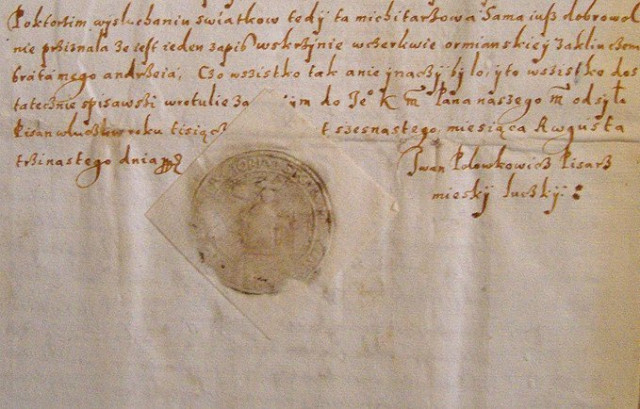 Poktortim wysluchaniu swiatkow tedy ta michitarzowa Sama iusz dobrowol
nie priznala ze iest ieden zapis wskrzynie wczerkwie ormianskiej zakluczem
brata mego andrzeia, Czo wszistko tak a nie jnaczy bylo, yto wszistko dos
tatecznie spisawszi wrotulie za im do Je° K m Pana naszego m odsyla
Pisan wluczku roku tisiącz t szesnastego, miesiąca Augusta
trzinastego dnia
Iwan Polowkowicz Pisarz
miesky luczky